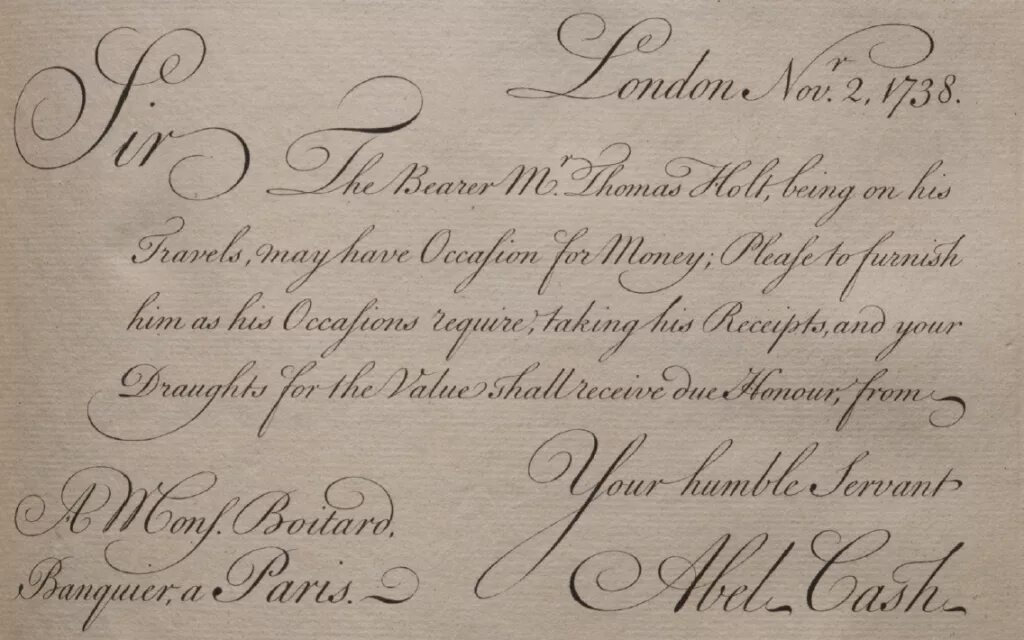 London Nov.r 2, 1738.
Sir
The Bearer M.r Thomas Holt, being on his
Travels, may have Occaſion for Money; Pleaſe to furnish
him as his Occaſions require, taking his Receipts, and your
Draughts for the Value shall receive due Honour, from
Your humble Servant
Abel Cash
A Monſ. Boitard,
Banquier, a Paris.